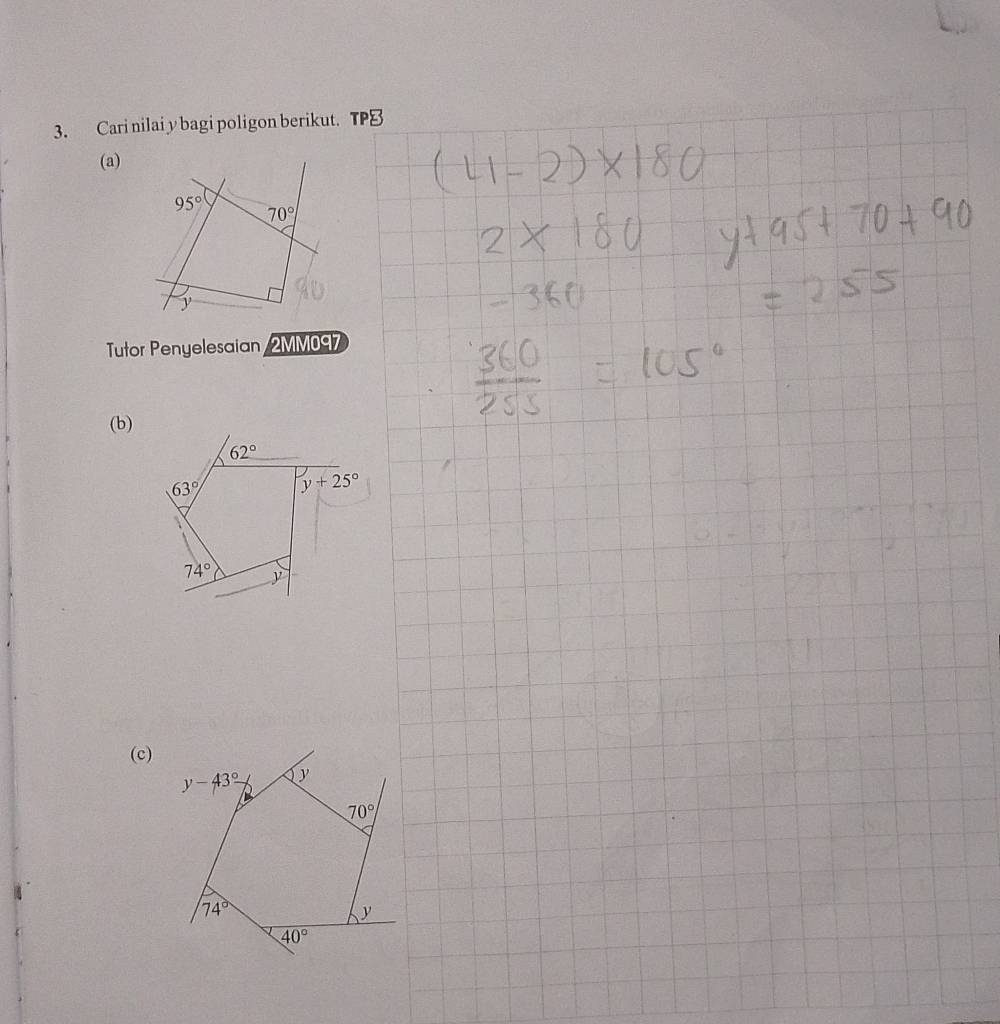 3. Cari nilai y bagi poligon berikut. TP3
(a)
95°
70°
y
90
(4-2)×180
2 × 180
- 360
y+95+70+90
= 255
360
255
= 105°
Tutor Penyelesaian 2MM097
(b)
62°
63°
y + 25°
74°
y
(c)
y – 43°
y
70°
74°
y
40°